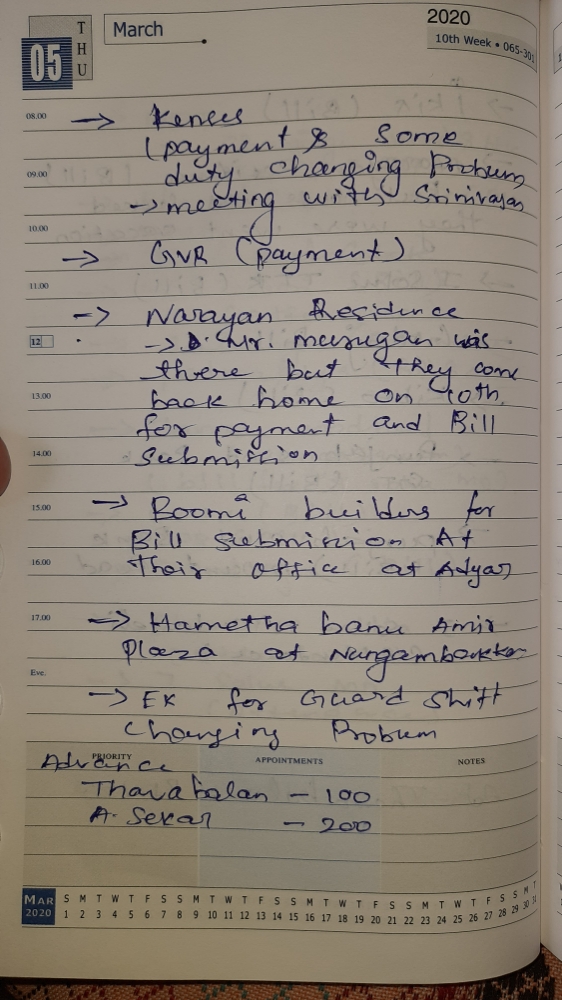 05
THU
March
2020
10th Week • 065-301
08.00
→ Kences
(payment & Some
09.00
duty changing Probum
→ meeting with Srinivasan
10.00
→ GVR (payment)
11.00
→ Narayan Residence
12
→ Mr. murugan was
there but they come
13.00
back home on 10th
for payment and Bill
14.00
Submission
15.00
→ Boomi builders for
Bill Submission At
16.00
their office at Adyar
17.00
→ Hametha banu Amir
Plaza at Nungambakkam
Eve.
→ EK for Guard Shift
Changing Probum
PRIORITY
APPOINTMENTS
NOTES
Advance
Thavabalan - 100
A. Sekar - 200
MAR 2020
S M T W T F S S M T W T F S S M T W T F S S M T W T F S S M T
1 2 3 4 5 6 7 8 9 10 11 12 13 14 15 16 17 18 19 20 21 22 23 24 25 26 27 28 29 30 31